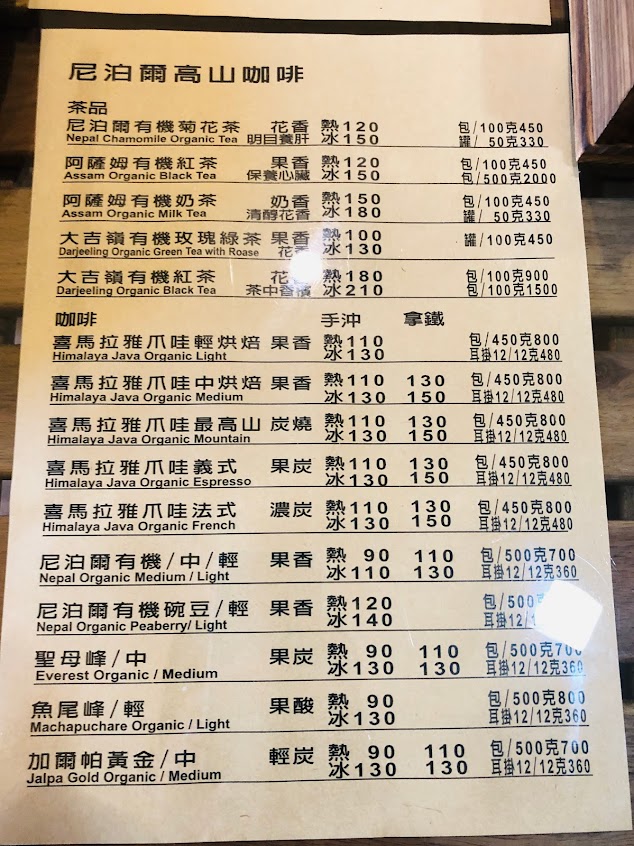 尼泊爾高山咖啡
茶品
尼泊爾有機菊花茶 花香 熱120 包/100克450
Nepal Chamomile Organic Tea 明目養肝 冰150 罐/ 50克330
阿薩姆有機紅茶 果香 熱120 包/100克450
Assam Organic Black Tea 保養心臟 冰150 包/500克2000
阿薩姆有機奶茶 奶香 熱150 包/100克450
Assam Organic Milk Tea 清醇花香 冰180 罐/ 50克330
大吉嶺有機玫瑰綠茶 果香 熱100 罐/100克450
Darjeeling Organic Green Tea with Roase 花 冰130
大吉嶺有機紅茶 花 熱180 包/100克900
Darjeeling Organic Black Tea 茶中香檳 冰210 包/100克1500
咖啡 手沖 拿鐵
喜馬拉雅爪哇輕烘焙 果香 熱110 包/450克800
Himalaya Java Organic Light 冰130 耳掛12/12克480
喜馬拉雅爪哇中烘焙 果香 熱110 130 包/450克800
Himalaya Java Organic Medium 冰130 150 耳掛12/12克480
喜馬拉雅爪哇最高山 炭燒 熱110 130 包/450克800
Himalaya Java Organic Mountain 冰130 150 耳掛12/12克480
喜馬拉雅爪哇義式 果炭 熱110 130 包/450克800
Himalaya Java Organic Espresso 冰130 150 耳掛12/12克480
喜馬拉雅爪哇法式 濃炭 熱110 130 包/450克800
Himalaya Java Organic French 冰130 150 耳掛12/12克480
尼泊爾有機/中/輕 果香 熱 90 110 包/500克700
Nepal Organic Medium / Light 冰110 130 耳掛12/12克360
尼泊爾有機碗豆/輕 果香 熱120 包/500
Nepal Organic Peaberry/ Light 冰140 耳掛12/
聖母峰/中 果炭 熱 90 110 包/500克700
Everest Organic / Medium 冰130 130 耳掛12/12克360
魚尾峰/輕 果酸 熱 90 包/500克800
Machapuchare Organic / Light 冰130 耳掛12/12克360
加爾帕黃金/中 輕炭 熱 90 110 包/500克700
Jalpa Gold Organic / Medium 冰130 130 耳掛12/12克360